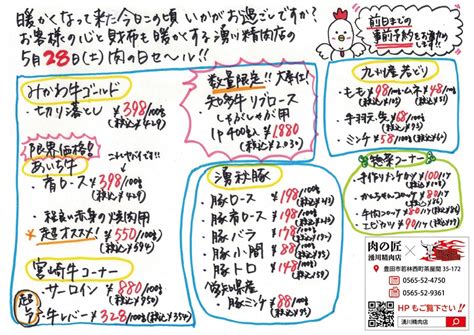 暖かくなって来た今日この頃 いかがお過ごしですか?
お客様の心と財布も暖かくする湧川精肉店の
5月28日(土) 肉の日セール!!
前日までの
事前予約をお薦め
します!!
みかわ牛ゴールド
・切り落とし ¥398/100g
(税込¥429)
限界価格!!
あいち牛
これやばいです!!
・肩ロース ¥398/100g
(税込¥429)
・程良い赤身の焼肉用
★超オススメ! ¥550/100g
(税込¥594)
宮崎牛コーナー
・サーロイン ¥880/100g
(税込¥950)
・牛レバー ¥328/100g
(税込¥354)
数量限定!! 大奉仕!
・知多牛リブロース
しゃぶしゃぶ用
1P400g入 ¥1,880
(税込¥2,030)
湧秋豚
・豚ロース ¥198/100g
・豚肩ロース ¥198/100g
・豚バラ ¥198/100g
・豚小間 ¥88/100g
・豚トロ ¥148/100g
愛知県産
・豚ミンチ ¥88/100g
九州産若どり
・もも ¥98/100g ・ムネ ¥48/100g
・手羽元、先 ¥68/100g
・ミンチ ¥58/100g
惣菜コーナー
・手作りメンチカツ ¥100/1ケ
・かんちゃんコロッケ ¥80/1ケ
・牛肉コロッケ ¥80/1ケ
・エビカツ ¥90/1ケ
肉の匠
湧川精肉店
豊田市若林西町茶屋間 35-172
0565-52-4750
0565-52-9361
HP もご覧下さい!!
湧川精肉店